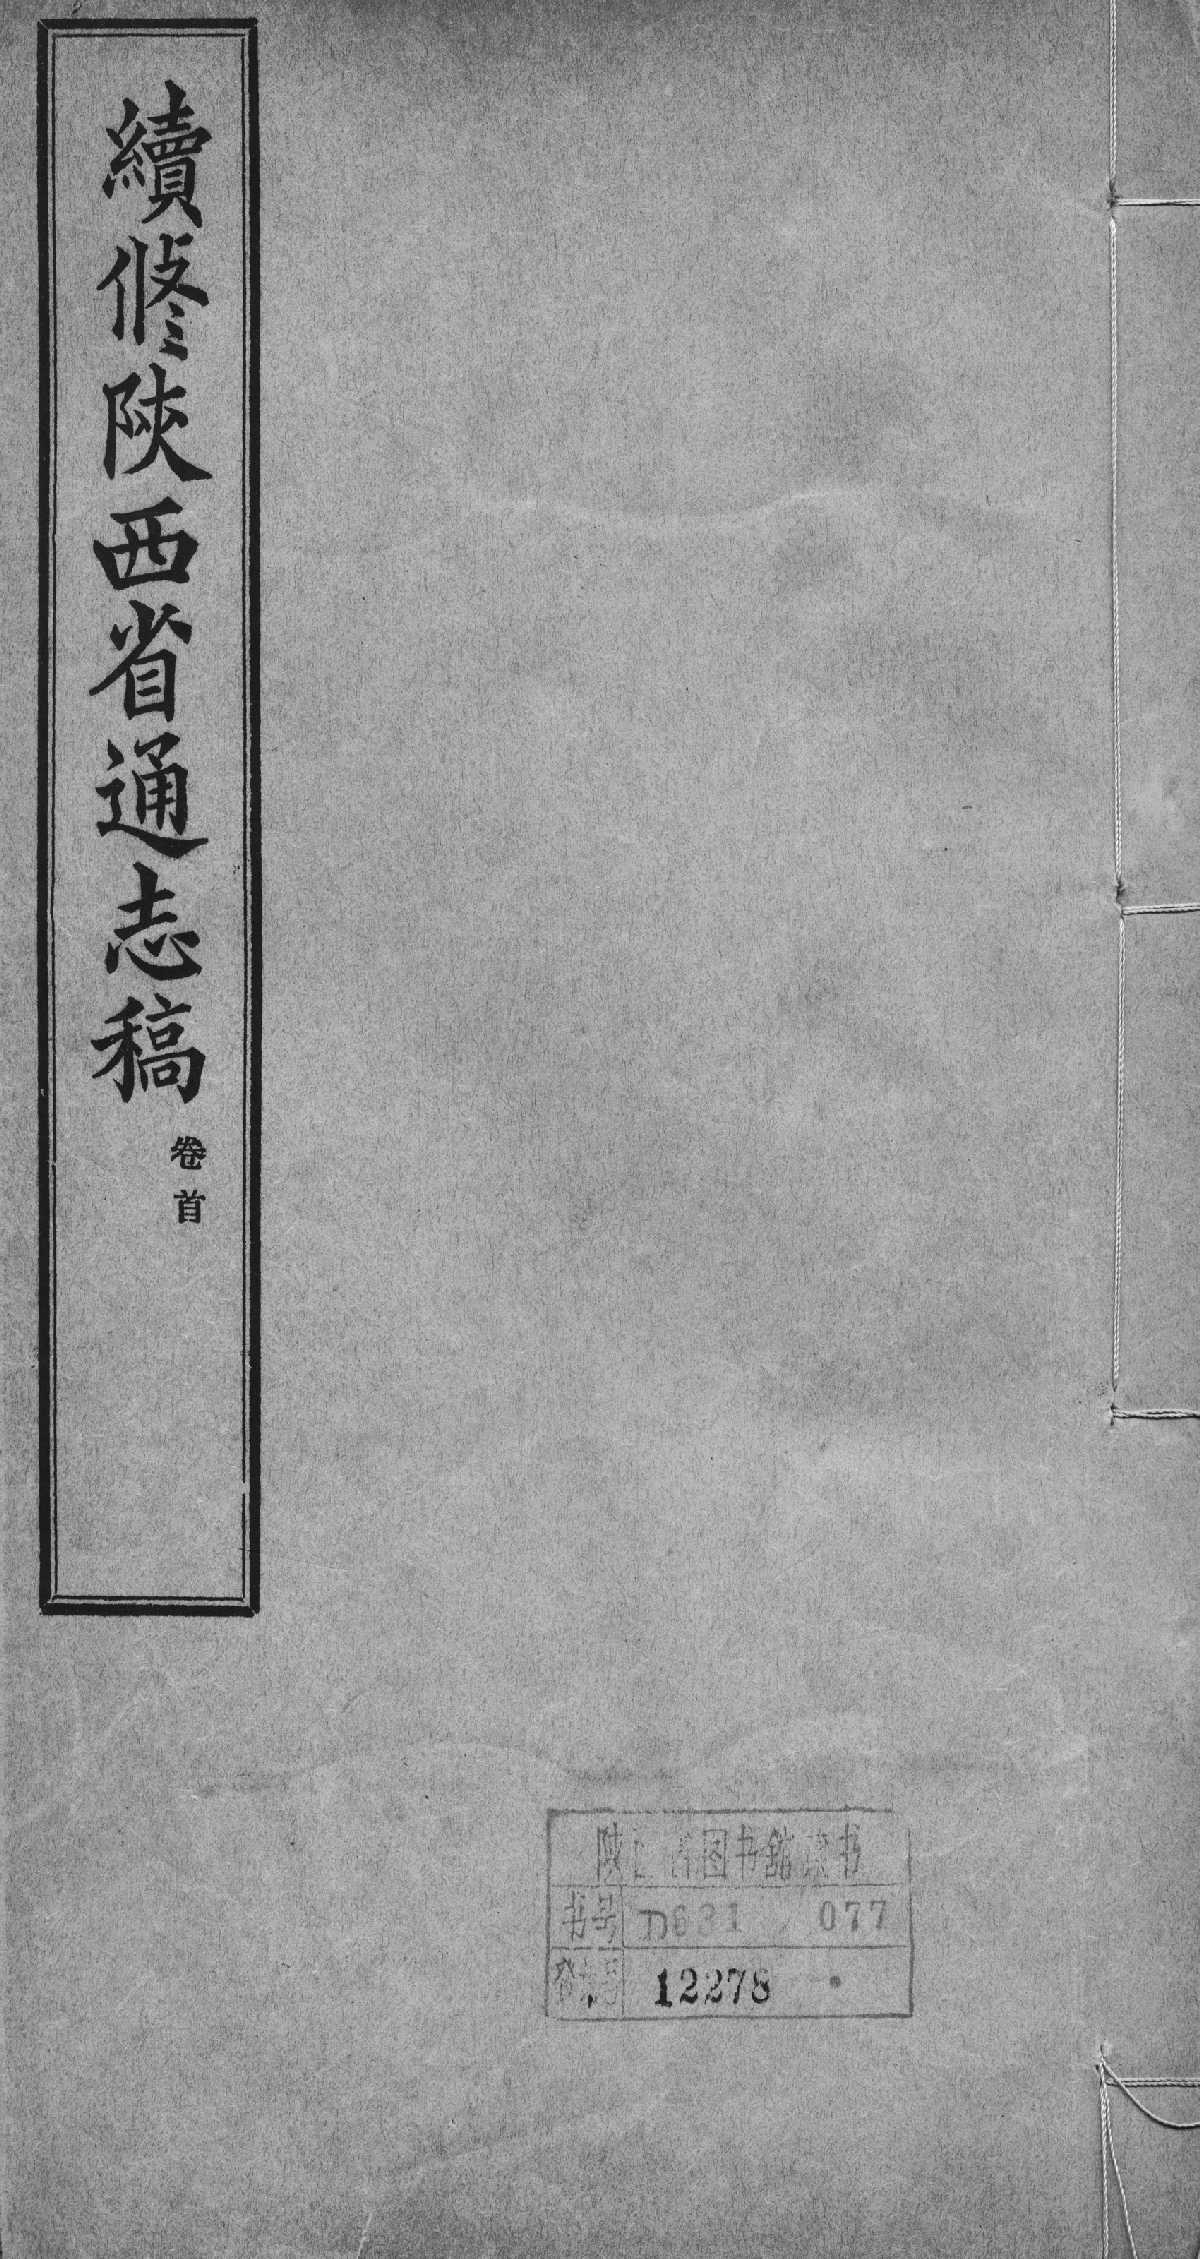 續修陝西省通志稿
卷首
陕西省图书舘藏书
书号 D631 077
登记号 12278